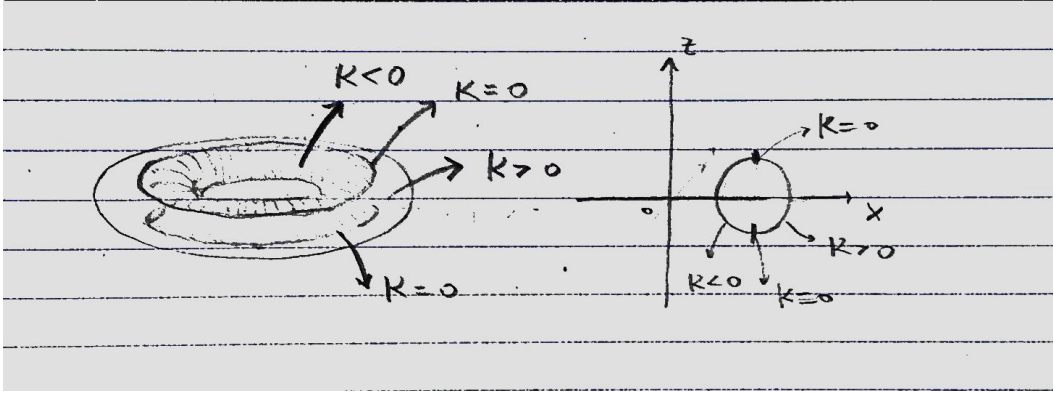 K<0
K=0
K>0
K=0
z
K=0
o
x
K>0
K<0
K=0